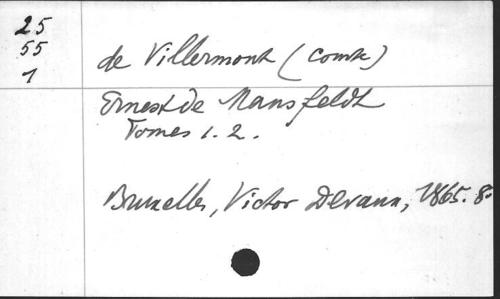 25
55
1
de Villermont (comte)
Ernest de Mansfeldt
Tomes 1. 2.
Bruxelles, Victor Devaux, 1865. 8º